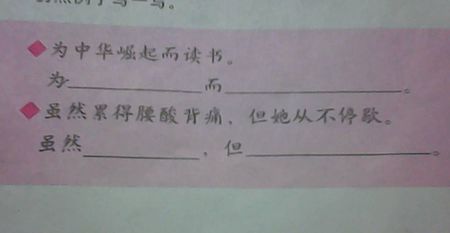 照例子写一写。
◆为中华崛起而读书。
为____________而__________________。
◆虽然累得腰酸背痛，但她从不停歇。
虽然____________，但__________________。